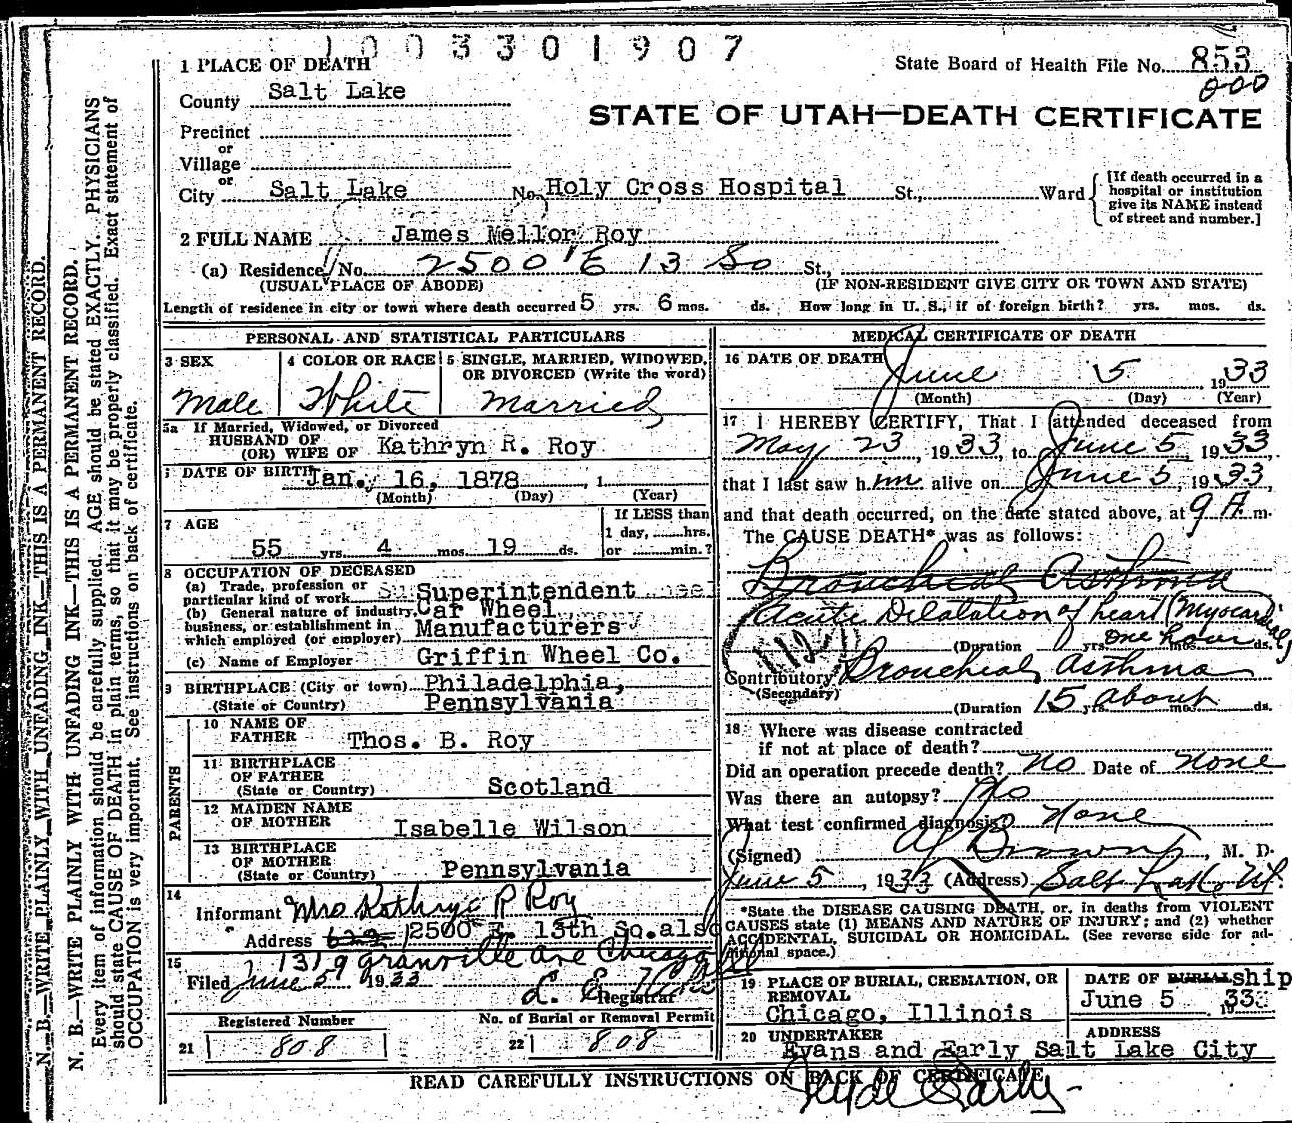 1003301907
State Board of Health File No. 853
000
STATE OF UTAH—DEATH CERTIFICATE
1 PLACE OF DEATH
County Salt Lake
Precinct
or
Village
or
City Salt Lake No. Holy Cross Hospital St., Ward
[If death occurred in a
hospital or institution
give its NAME instead
of street and number.]
2 FULL NAME James Mellor Roy
(a) Residence, No. 2500 E 13 So St.,
(USUAL PLACE OF ABODE) (IF NON-RESIDENT GIVE CITY OR TOWN AND STATE)
Length of residence in city or town where death occurred 5 yrs. 6 mos. ds. How long in U. S., if of foreign birth? yrs. mos. ds.
PERSONAL AND STATISTICAL PARTICULARS
3 SEX 4 COLOR OR RACE 5 SINGLE, MARRIED, WIDOWED,
OR DIVORCED (Write the word)
Male White Married
5a If Married, Widowed, or Divorced
HUSBAND OF
(OR) WIFE OF Kathryn R. Roy
DATE OF BIRTH Jan. 16, 1878, 1
(Month) (Day) (Year)
7 AGE If LESS than
1 day, hrs.
55 yrs. 4 mos. 19 ds. or min.?
8 OCCUPATION OF DECEASED
(a) Trade, profession or
particular kind of work Superintendent
(b) General nature of industry, Car Wheel
business, or establishment in Manufacturers
which employed (or employer)
(c) Name of Employer Griffin Wheel Co.
9 BIRTHPLACE (City or town) Philadelphia,
(State or Country) Pennsylvania
PARENTS
10 NAME OF
FATHER Thos. B. Roy
11 BIRTHPLACE
OF FATHER
(State or Country) Scotland
12 MAIDEN NAME
OF MOTHER Isabelle Wilson
13 BIRTHPLACE
OF MOTHER
(State or Country) Pennsylvania
14
Informant Mrs Kathryn R Roy
Address 2500 E. 13th So. also
1319 Granville Ave Chicago Ill
15
Filed June 5, 1933
Registrar
Registered Number No. of Burial or Removal Permit
21 808 22 808
MEDICAL CERTIFICATE OF DEATH
16 DATE OF DEATH
June 5, 1933
(Month) (Day) (Year)
17 I HEREBY CERTIFY, That I attended deceased from
May 23, 1933, to June 5, 1933,
that I last saw him alive on June 5, 1933,
and that death occurred, on the date stated above, at 9 A. m.
The CAUSE DEATH* was as follows:
Bronchial Asthma
Acute Dilatation of heart (Myocardial)
(Duration yrs. one hour mos. ds.
112
Contributory Bronchial Asthma
(Secondary)
(Duration 15 yrs. about mos. ds.
18 Where was disease contracted
if not at place of death?
Did an operation precede death? No Date of None
Was there an autopsy? No
What test confirmed diagnosis? None
(Signed) Brown, M. D.
June 5, 1933 (Address) Salt Lake, Ut.
*State the DISEASE CAUSING DEATH, or, in deaths from VIOLENT
CAUSES state (1) MEANS AND NATURE OF INJURY; and (2) whether
ACCIDENTAL, SUICIDAL OR HOMICIDAL. (See reverse side for ad-
ditional space.)
19 PLACE OF BURIAL, CREMATION, OR
REMOVAL
Chicago, Illinois
DATE OF BURIAL ship
June 5 1933
20 UNDERTAKER ADDRESS
Evans and Early Salt Lake City
READ CAREFULLY INSTRUCTIONS ON BACK OF CERTIFICATE
N. B.—WRITE PLAINLY WITH UNFADING INK—THIS IS A PERMANENT RECORD.
N. B.—WRITE PLAINLY WITH UNFADING INK—THIS IS A PERMANENT RECORD.
Every item of information should be carefully supplied. AGE should be stated EXACTLY. PHYSICIANS
should state CAUSE OF DEATH in plain terms, so that it may be properly classified. Exact statement of
OCCUPATION is very important. See instructions on back of certificate.